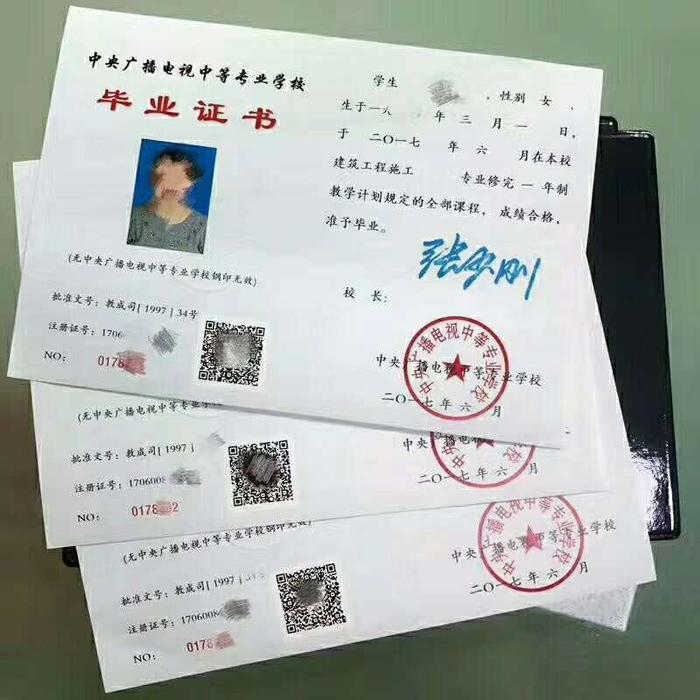 中央广播电视中等专业学校
毕业证书
(无中央广播电视中等专业学校钢印无效)
批准文号:教成司[1997]34号
注册证号:1706
NO: 0178
学生 ,性别 女 ,
生于一九 年 三 月 一 日,
于 二〇一七 年 六 月在本校
建筑工程施工 专业修完 一 年制
教学计划规定的全部课程,成绩合格,
准予毕业。
校 长:
中央广播电视中等专业学校
二〇一七 年 六 月
中央广播电视中等专业学校
(无中央广播电视中等专业学
批准文号:教成司[1997]
注册证号:170600
NO: 0178
中央广播电
二〇一七 年 六 月
(无中央广播电视中等专业学校钢印无效)
批准文号:教成司[1997]34
注册证号:1706008
NO: 0178
中央广播电视中等专业学校
二〇一七 年 六 月
中央广播电视中等专业学校